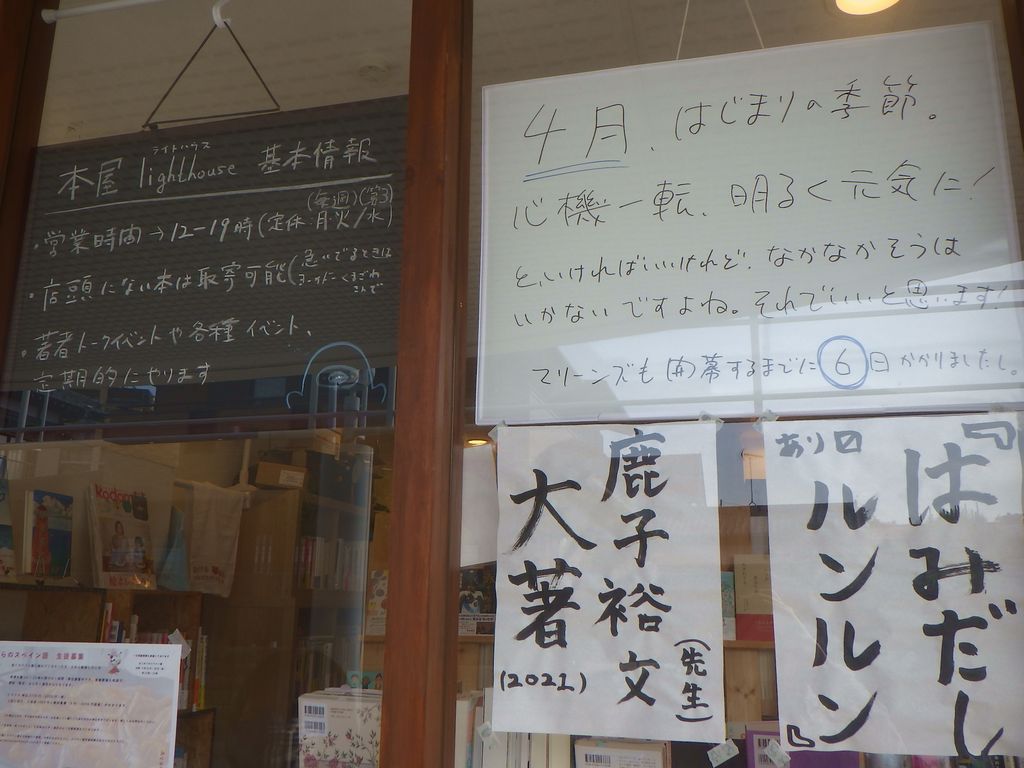 本屋 lighthouse 基本情報
ライトハウス
・営業時間→12-19時(定休 月・火/水)
(毎週)(第3)
・店頭にない本は取寄可能(急いでるときは
ヨーカドーくまざわ
さんで
・著者トークイベントや各種イベント、
定期的にやります
4月、はじまりの季節。
心機一転、明るく元気に!
と、いければいいけれど、なかなかそうは
いかないですよね。それでいいと思います!
マリーンズも開幕するまでに6日かかりましたし。
『はみだし
ルンルン』
あり〼
鹿子裕文(先生)
大著
(2021)
らのスペイン語 生徒募集
kodomoe